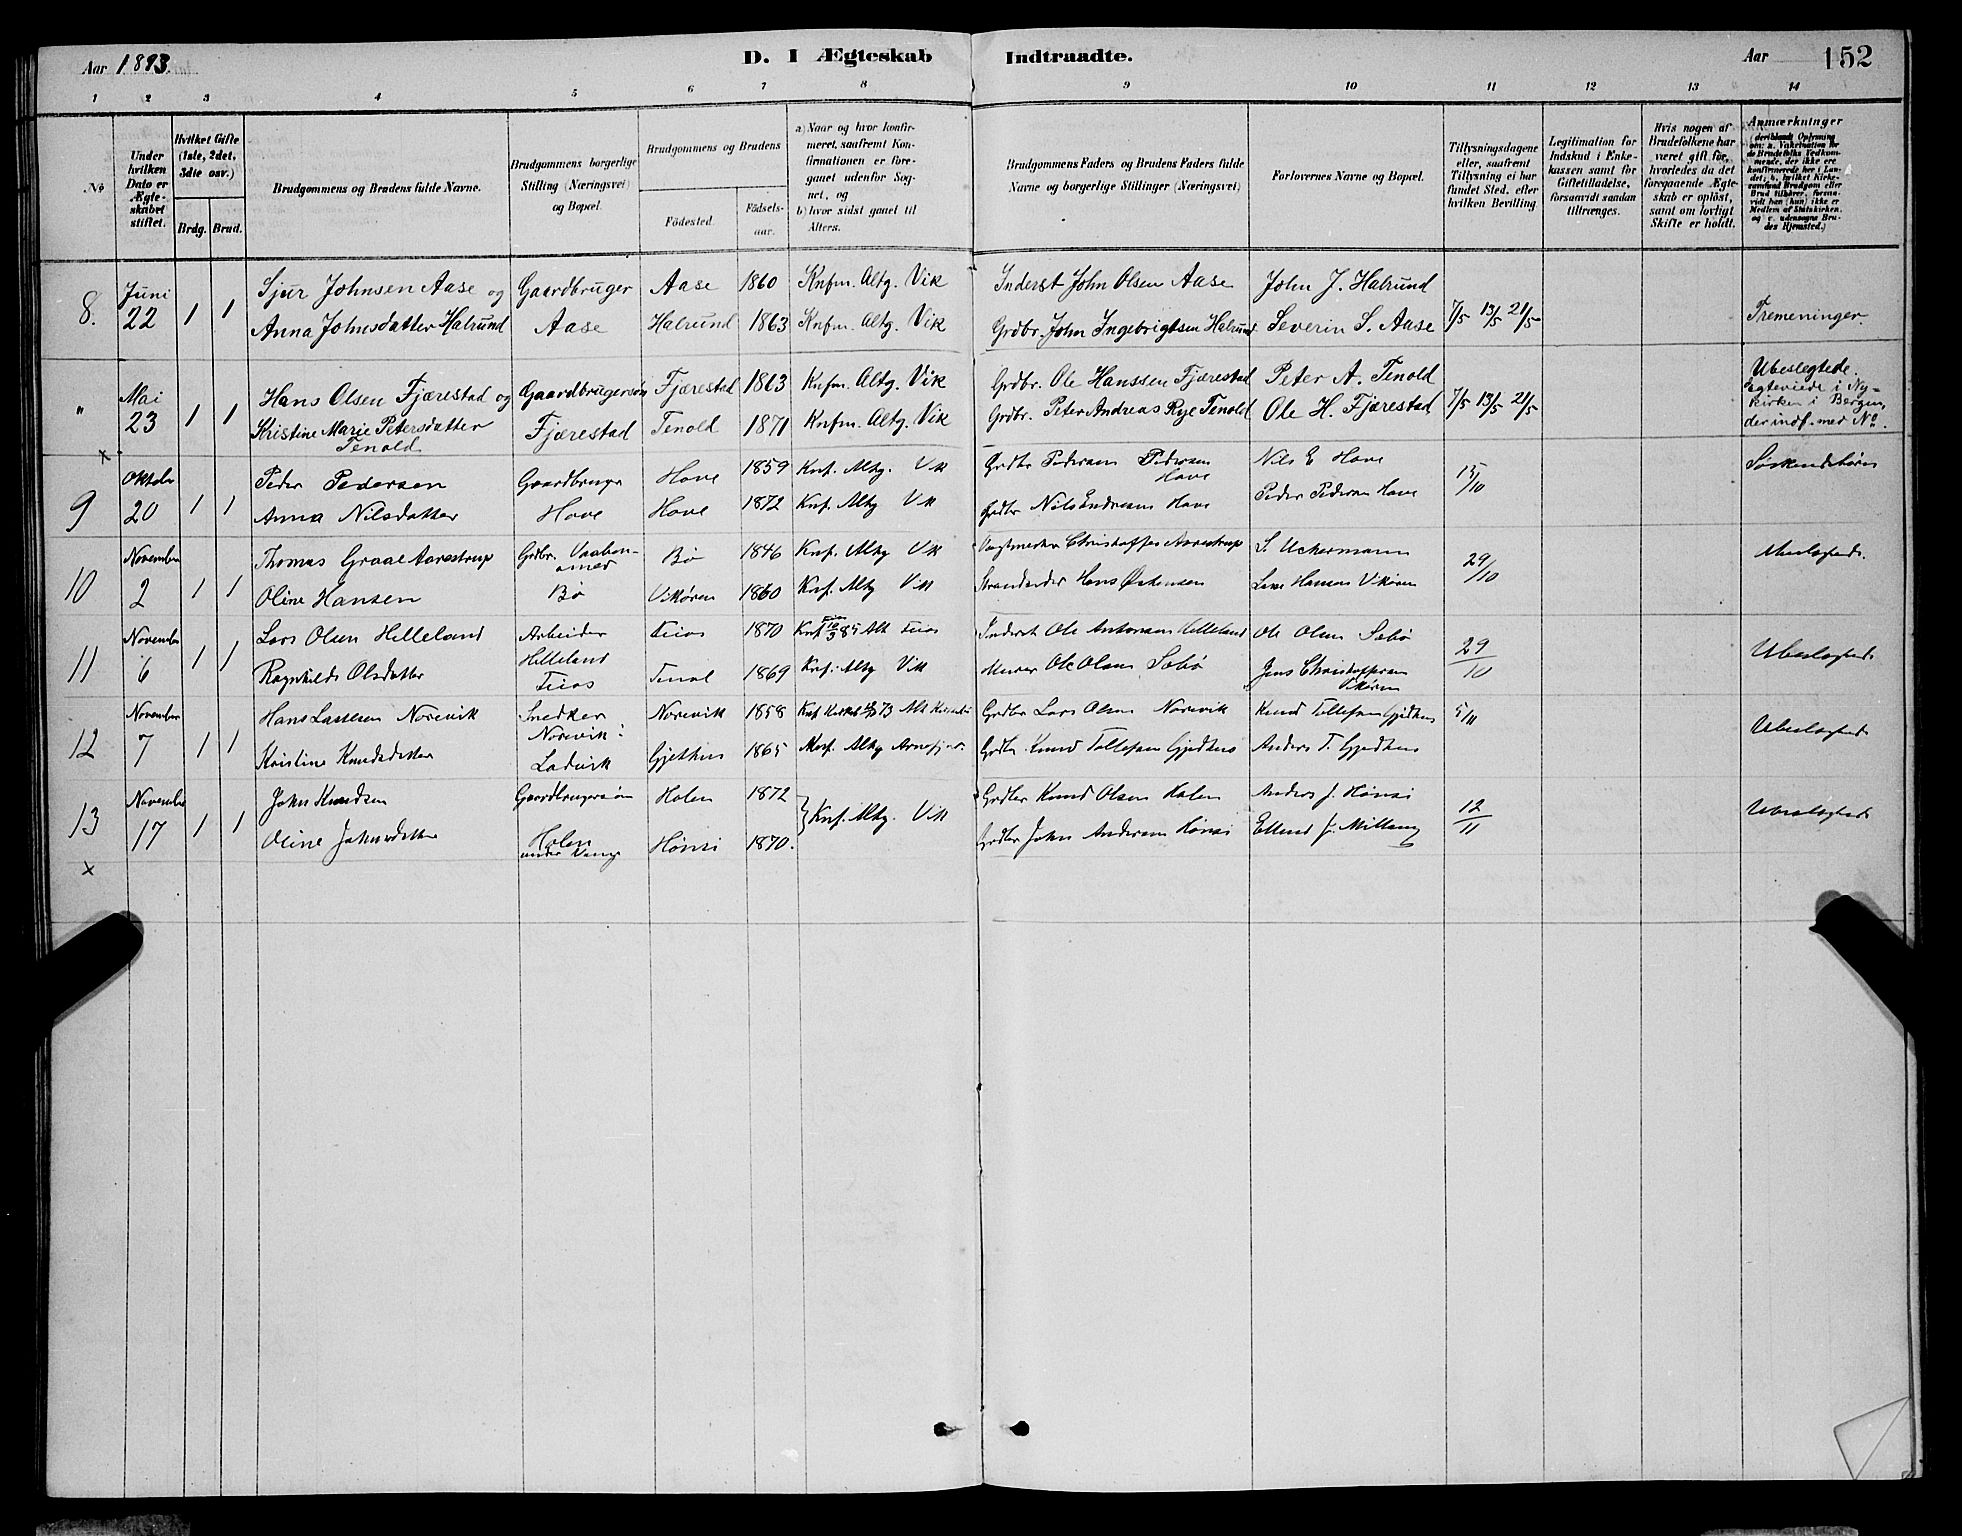 Aar 1893. D. I Ægteskab Indtraadte. Aar 152
1 2 3 4 5 6 7 8 9 10 11 12 13 14
No
Under hvilken Dato er Ægteskabet stiftet.
Hvilket Gifte (1ste, 2det, 3die osv.)
Brdg. Brud.
Brudgommens og Brudens fulde Navne.
Brudgommens borgerlige Stilling (Næringsvei) og Bopæl.
Brudgommens og Brudens
Födested. Födselsaar.
a) Naar og hvor konfirmeret, saafremt Konfirmationen er foregaaet udenfor Sognet, og
b) hvor sidst gaaet til Alters.
Brudgommens Faders og Brudens Faders fulde Navne og borgerlige Stillinger (Næringsvei)
Forlovernes Navne og Bopæl.
Tillysningsdagene eller, saafremt Tillysning ei har fundet Sted, efter hvilken Bevilling.
Legitimation for Indskud i Enkekassen samt for Giftetilladelse, forsaavidt saadan tiltrænges.
Hvis nogen af Brudefolkene har været gift för, hvorledes da det foregaaende Ægteskab er oplöst, samt om lovligt Skifte er holdt.
Anmærkninger (deriblandt Oplysning om: a. Vakcination for de Brudefolks Vedkommende, der ikke ere konfirmerede her i Landet; b. hvilket Kirkesamfund Brudgom eller Brud tilhörer, forsaavidt han (hun) ikke er Medlem af Statskirken, og c. udensogns Brudes Hjemsted.)
8. Juni 22 1 1
Sjur Johnsen Aase og Gaardbruger Aase 1860 Knfm. Altg. Vik Inderst John Olsen Aase John J. Halrund
Anna Johnsdatter Halrund Aase Halrund 1863 Knfm. Altg. Vik Grdbr. John Ingebrigtsen Halrund Severin S. Aase 7/5 13/5 21/5 Tremeninger.
" Mai 23 1 1
Hans Olsen Fjærestad og Gaardbrugersøn Fjærestad 1863 Knfm. Altg. Vik Grdbr. Ole Hanssen Fjærestad Peter A. Tenold
Kristine Marie Petersdatter Tenold Fjærestad Tenold 1871 Knfm. Altg. Vik Grdbr. Peter Andreas Rye Tenold Ole H. Fjærestad 7/5 13/5 21/5
Ubeslegtede.
Egteviede i Ny-
kirken i Bergen,
der indf. med No.
x
9 Oktober 20 1 1
Peder Pedersen Gaardbruger Hove 1859 Knf. Altg. Vik Grdbr Pedersen Pedersen Hove Nils E Hove 15/10 Søskendebørn
Anna Nilsdatter Hove Hove 1872 Knf. Altg Vik Grdbr Nils Endresen Hove Peder Pedersen Hove
10 November 2 1 1
Thomas Graae Aarestrup Grdbr. Vaabensmed Bø 1846 Knf. Altg Vik Christoffer Aarestrup S. Uchermann 29/10 Ubeslegtede.
Oline Hansen Bø Vikøren 1860 Knf. Altg Vik Strandsidder Hans Hansen Vikøren
11 November 6 1 1
Lars Olsen Hilleland Arbeider Feios 1870 Knf 85 Alt Feios Inderst Ole Hilleland Ole Olsen Sæbø 29/10 Ubeslegtede
Ragnhilds Olsdatter Hilleland Feios Tenol 1869 Knf. Altg Vik Murer Ole Olsen Sæbø Jens Christoffersen Vikøren
12 November 7 1 1
Hans Lassesen Norevik Snedker Norevik 1858 Knf 73 Alt Grdbr Lars Olsen Norevik Knud Tollefsen Gjedhus 5/11 Ubeslegtede
Kristine Knudsdatter Norevik: Ladvik Gjethus 1865 Knf. Altg Arnefjord. Grdbr. Knud Tollefsen Gjedhus Anders T. Gjedhus
13 November 17 1 1
John Knudsen Gaardbrugersøn Holen 1872 Knf. Altg. Vik Grdbr Knud Olsen Holen Anders J. Hønsi 12/11 Ubeslegtede
Oline Johnsdatter Holen under Vange Hønsi 1870. Grdbr John Andersen Hønsi Ellend J. Midtung
x